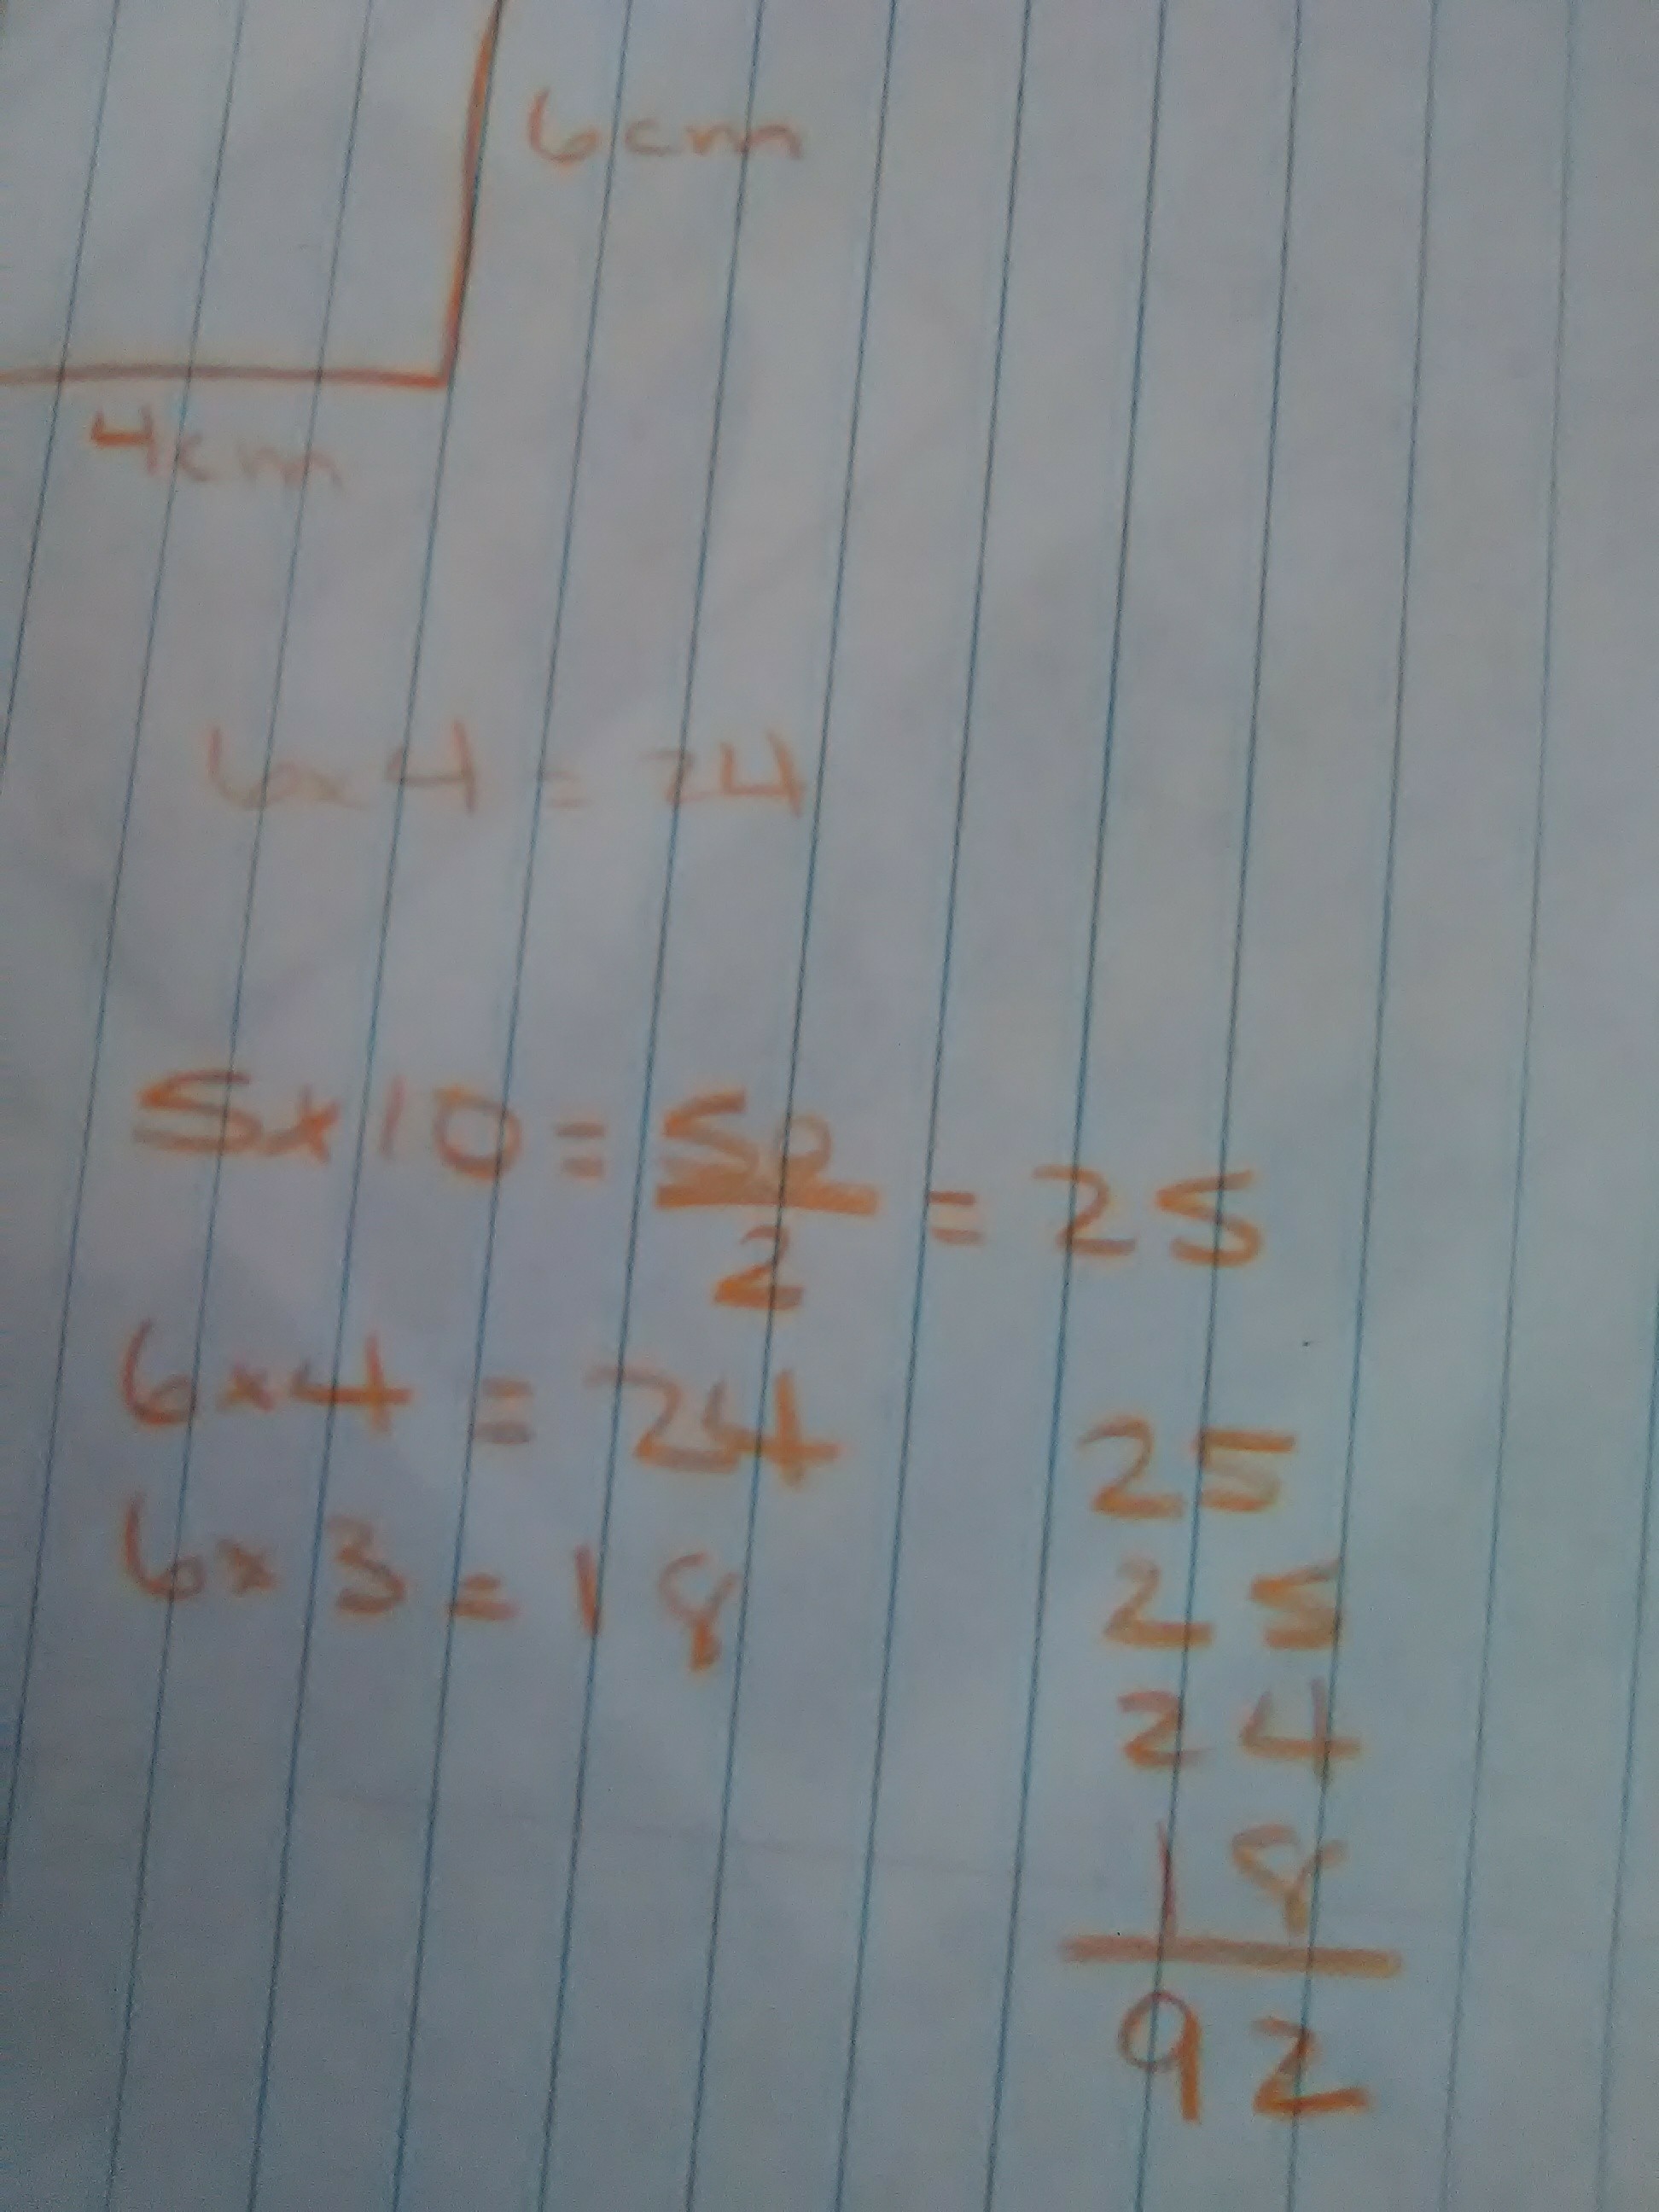 6cm
4cm
6x4 = 24
5x10 = 50/2 = 25
6x4 = 24
6x3 = 18
25
25
24
18
92